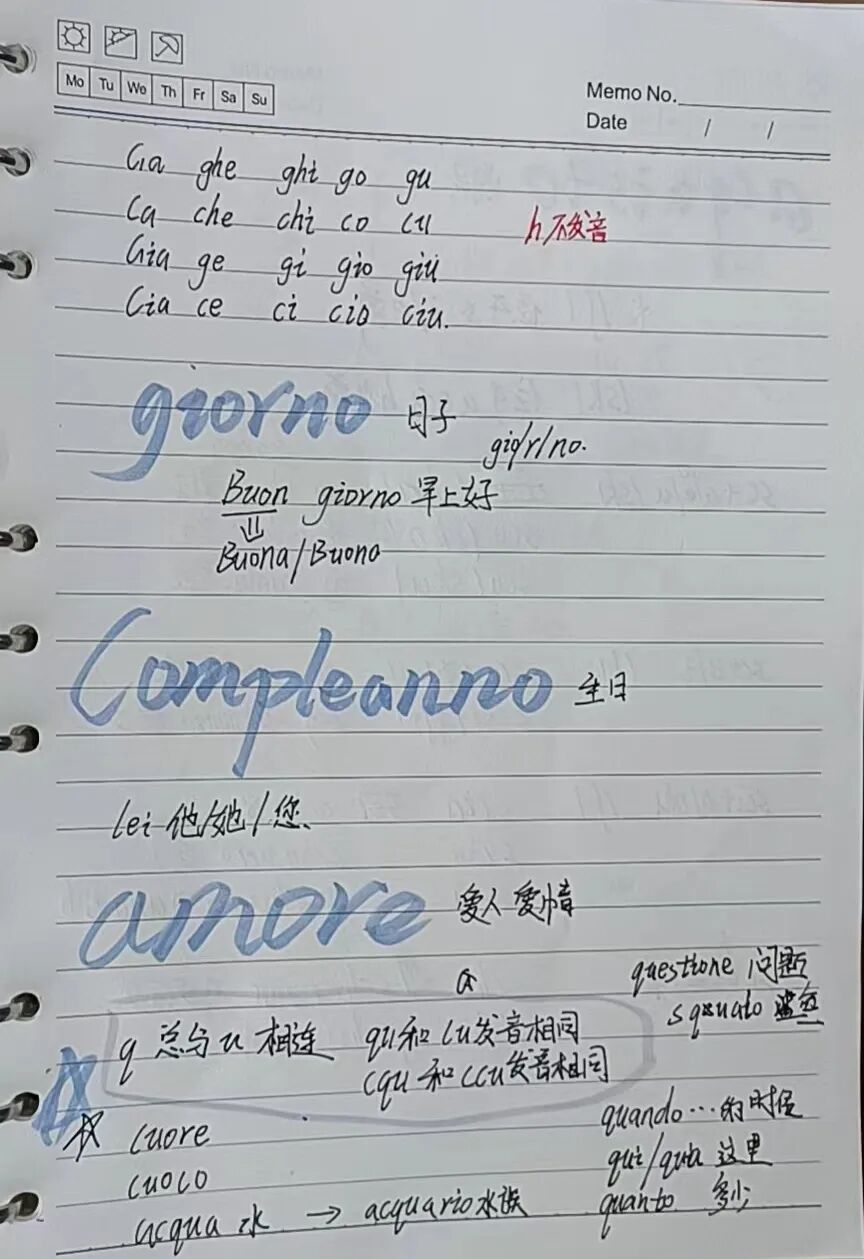 Mo Tu We Th Fr Sa Su
Memo No.
Date / /
Ga ghe ghi go gu
Ca che chi co cu
h不发音
Gia ge gi gio giu
Cia ce ci cio ciu.
giorno 日子
gio/r/no.
Buon giorno 早上好
Buona/Buono
Compleanno 生日
lei 他/她/您
amore 爱人 爱情
a
questione 问题
squalo 鲨鱼
q 总与u 相连 qu和cu发音相同
cqu 和ccu发音相同
quando …的时候
cuore
qui/qua 这里
cuoco
quanto 多少
acqua 水 → acquario水族